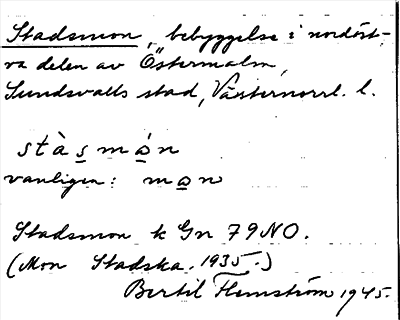 Stadsmon, bebyggelse i nordöst-
ra delen av Östermalm,
Sundsvalls stad, Västernorrl. l.
stàsmón
vanligen: mon
Stadsmon k Gn 79NO.
(Mon Stadska. 1935.)
Bertil Flemström 1945.